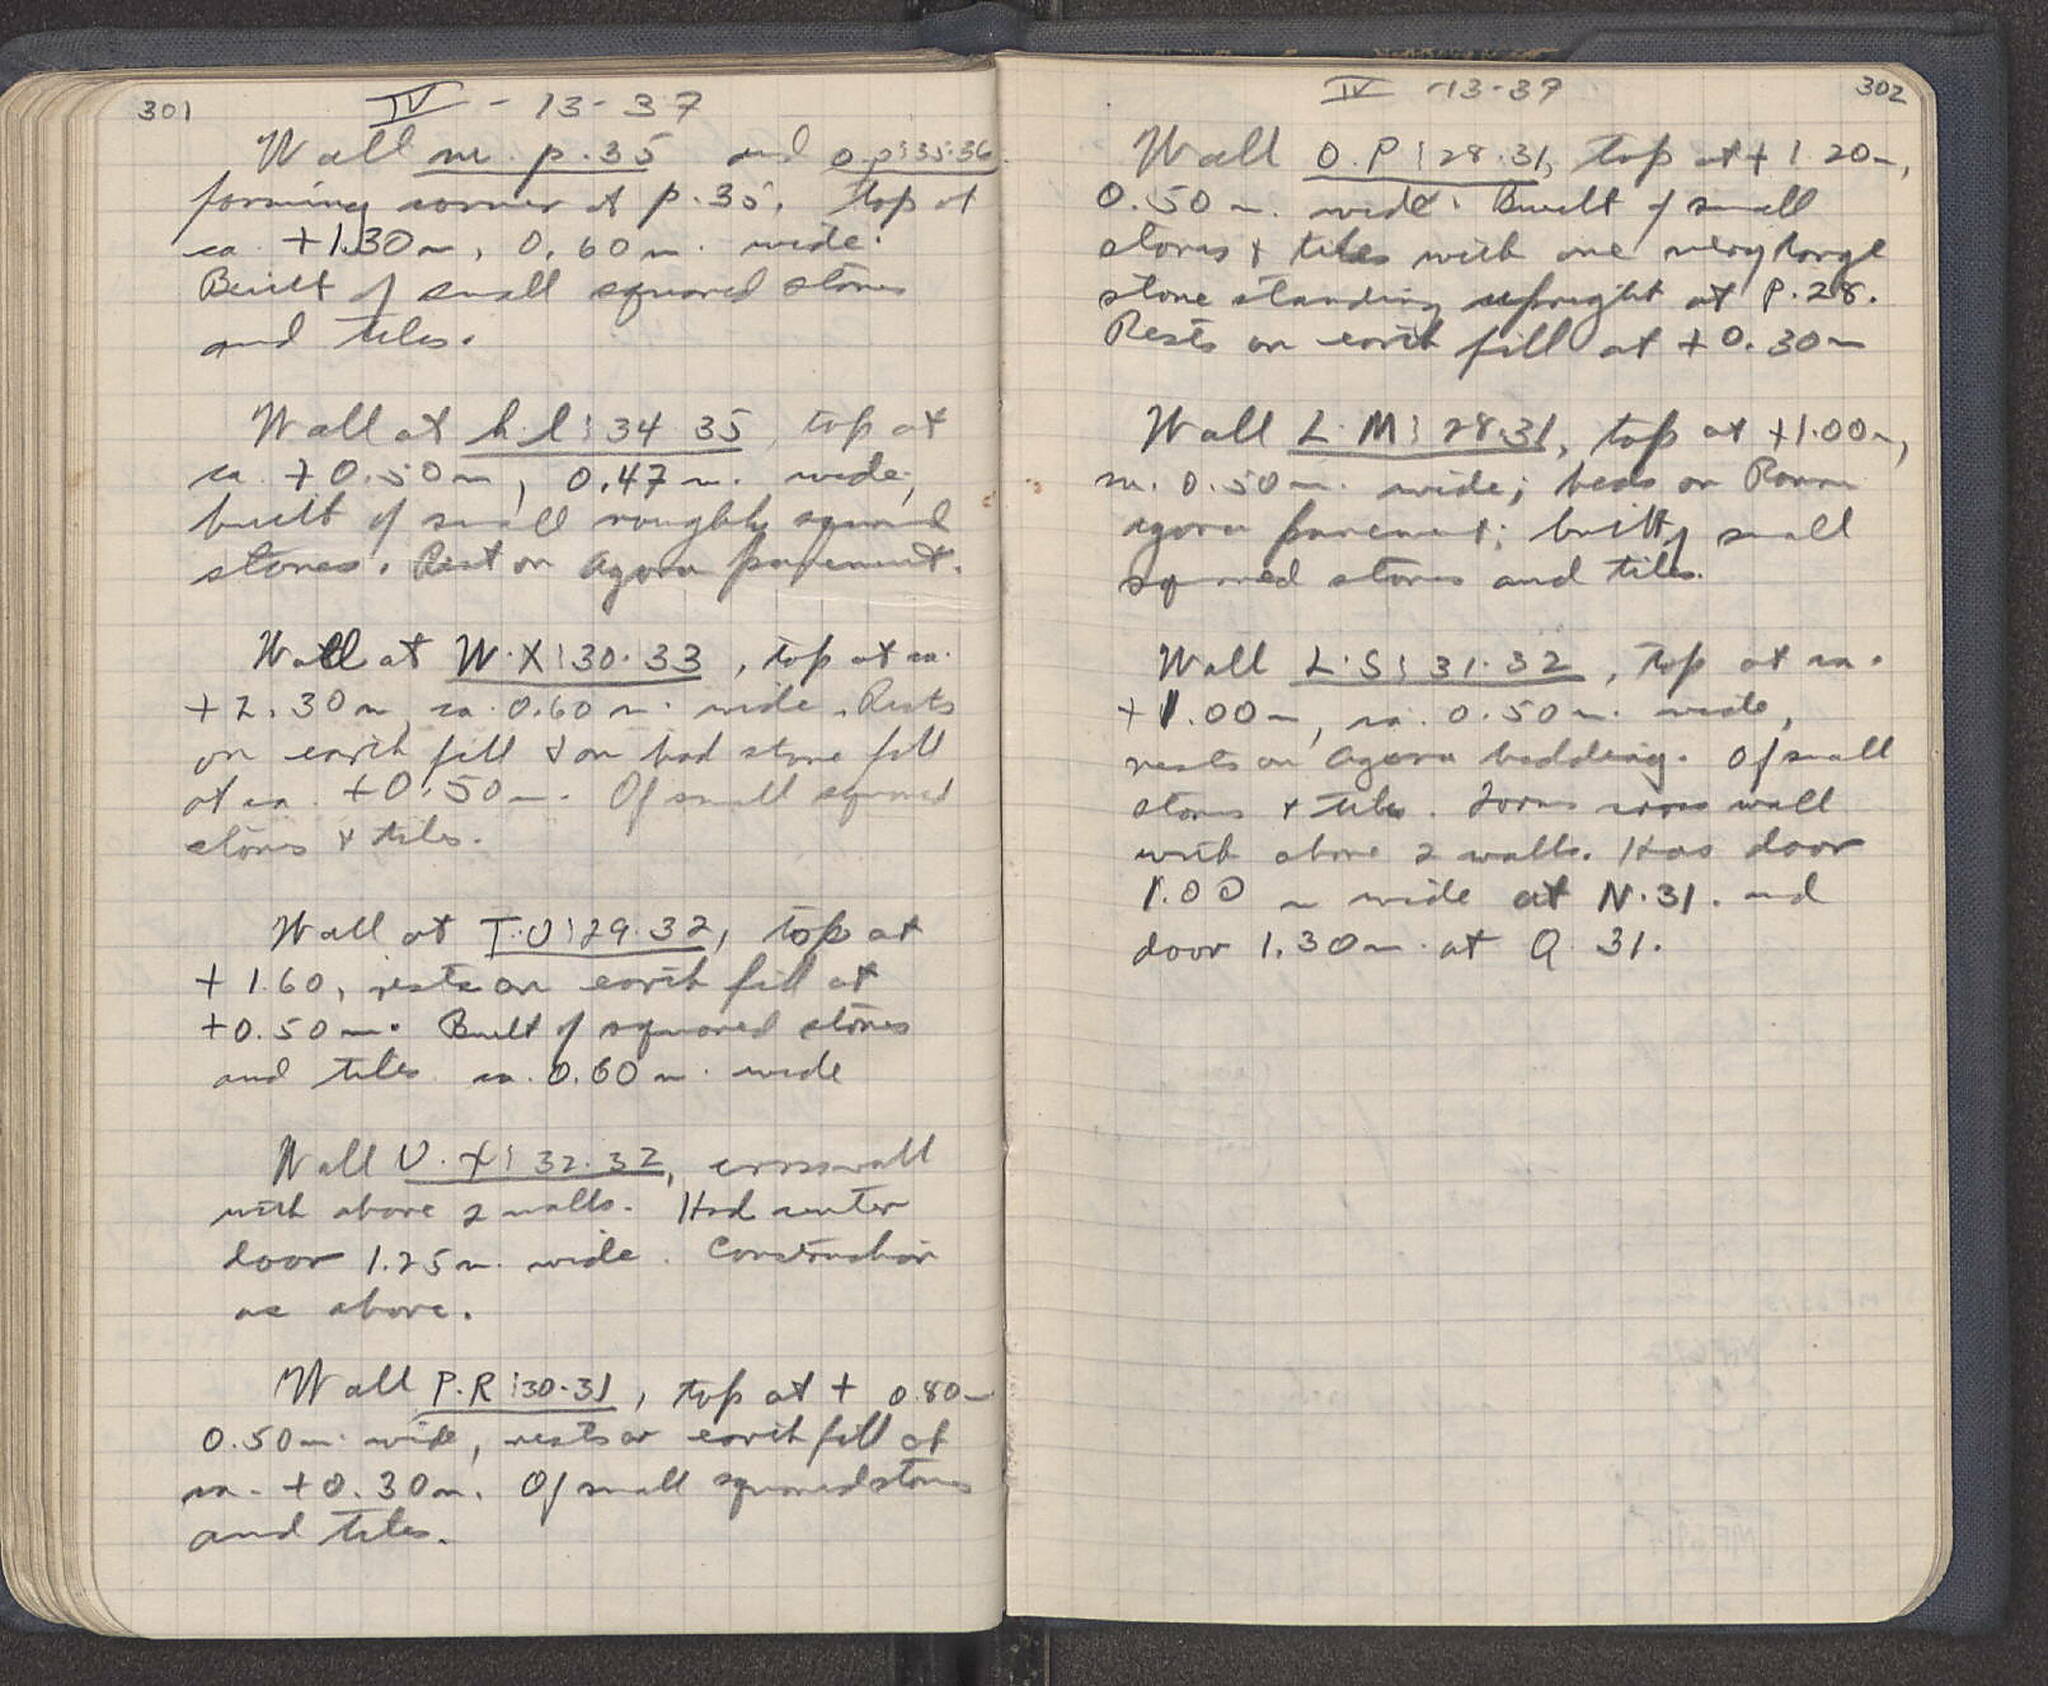 301
IV - 13 - 37
Wall m. p. 35 and o.p:35.36
forming corner at p. 35. Top at
ca. +1.30m, 0.60m. wide.
Built of small squared stones
and tiles.
Wall at h.l:34.35, top at
ca. +0.50m, 0.47m. wide,
built of small roughly squared
stones. Rest on Agora pavement.
Wall at W.X:30.33, top at ca.
+2.30m, ca. 0.60m. wide. Rests
on earth fill & on had stone fill
at ca. +0.50m. Of small squared
stones & tiles.
Wall at T.U:29.32, top at
+1.60, rests on earth fill at
+0.50m. Built of squared stones
and tiles ca. 0.60m. wide
Wall U.X:32.32, crosswall
with above 2 walls. Had center
door 1.25m. wide. Construction
as above.
Wall P.R:30.31, top at + 0.80m
0.50m. wide, rests on earth fill at
ca. +0.30m. Of small squared stones
and tiles.
302
IV - 13 - 37
Wall O.P:28.31, top at +1.20m,
0.50m. wide. Built of small
stones & tiles with one very large
stone standing upright at P.28.
Rests on earth fill at +0.30m
Wall L.M:28.31, top at +1.00m,
ca. 0.50m. wide; beds on Roman
agora pavement; built of small
squared stones and tiles.
Wall L.S:31.32, top at ca.
+1.00m, ca. 0.50m. wide,
rests on Agora bedding. Of small
stones & tiles. Forms cross wall
with above 2 walls. Has door
1.00 m wide at N.31. and
door 1.30m. at Q 31.